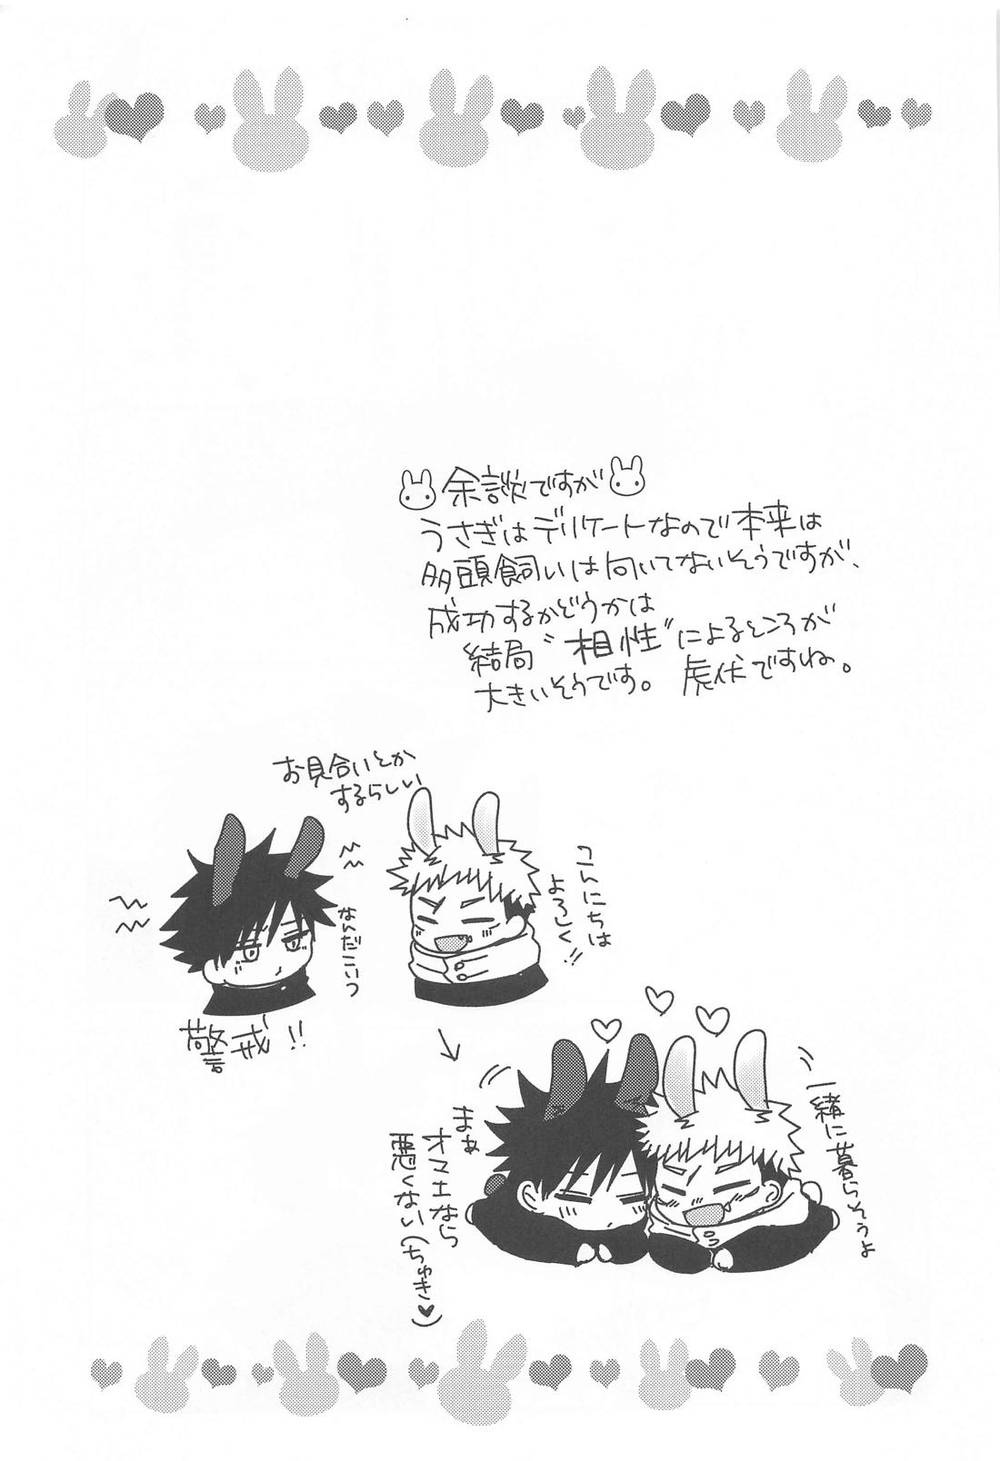 余談ですが
うさぎはデリケートなので本来は
多頭飼いは向いてないそうですが、
成功するかどうかは
結局〝相性〟によるところが
大きいそうです。 虎伏ですね。
お見合いとか
するらしい
こんにちは
よろしく!!
なんだこいつ
警戒!!
一緒に暮らそうよ
まぁ
オマエなら
悪くない(ちゅき♥)